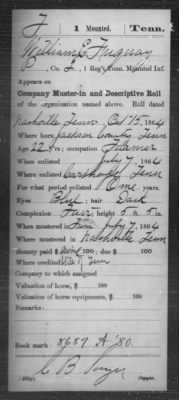 F 1 Mounted. Tenn.
William C Fuguay
P, Co. F, 1 Reg't Tenn. Mounted Inf.
Appears on
Company Muster-in and Descriptive Roll
of the organization named above. Roll dated
Nashville Tenn Oct 15, 1864
Where born Jackson County Tenn
Age 22 y'rs; occupation Farmer
When enlisted July 7, 1864
Where enlisted Carthage Tenn
For what period enlisted One years.
Eyes Blue; hair Dark
Complexion Fair; height 5 ft. 5 in.
When mustered in July 7, 1864
Where mustered in Nashville Tenn
Bounty paid $ none 100; due $ 100
Where credited Tenn
Company to which assigned
Valuation of horse, $ 100
Valuation of horse equipments, $ 100
Remarks:
Book mark: 8687 A '80.
C B
Copyist.